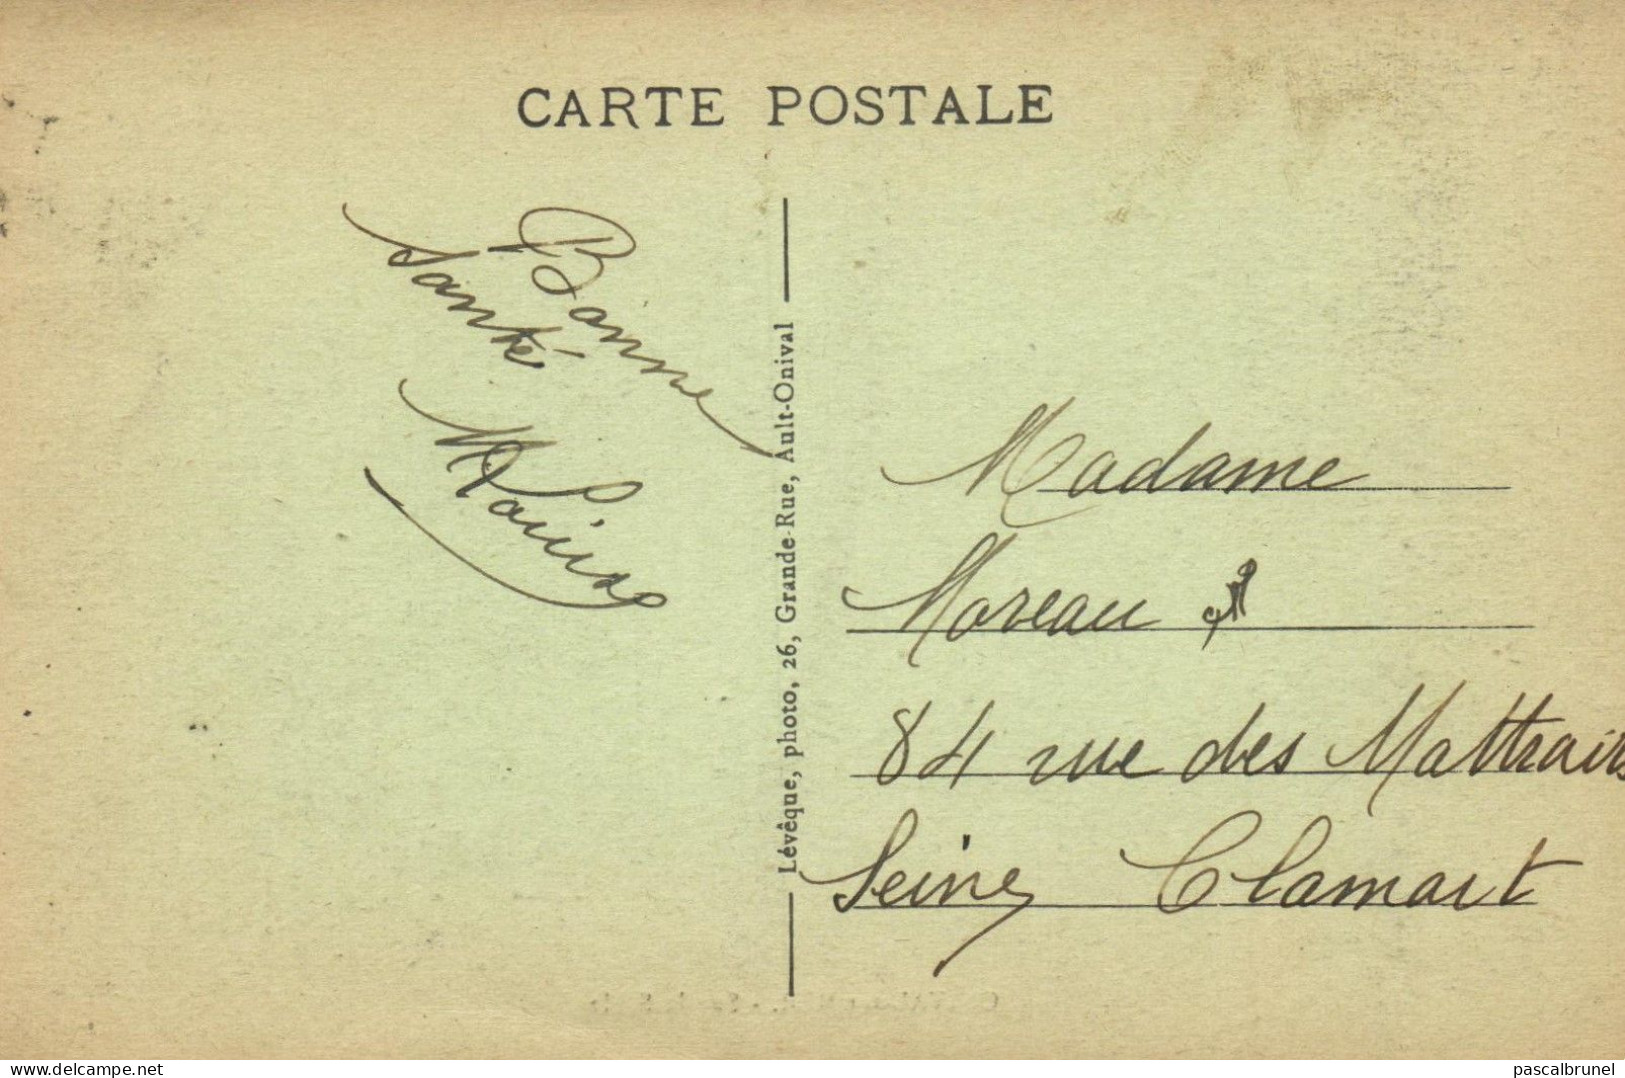 CARTE POSTALE
Bonne
Santé
Louise
Lévêque, photo, 26, Grande-Rue, Ault-Onival
Madame
Moreau
84 rue des Mattrais
Seine Clamart
www.delcampe.net
pascalbrunel